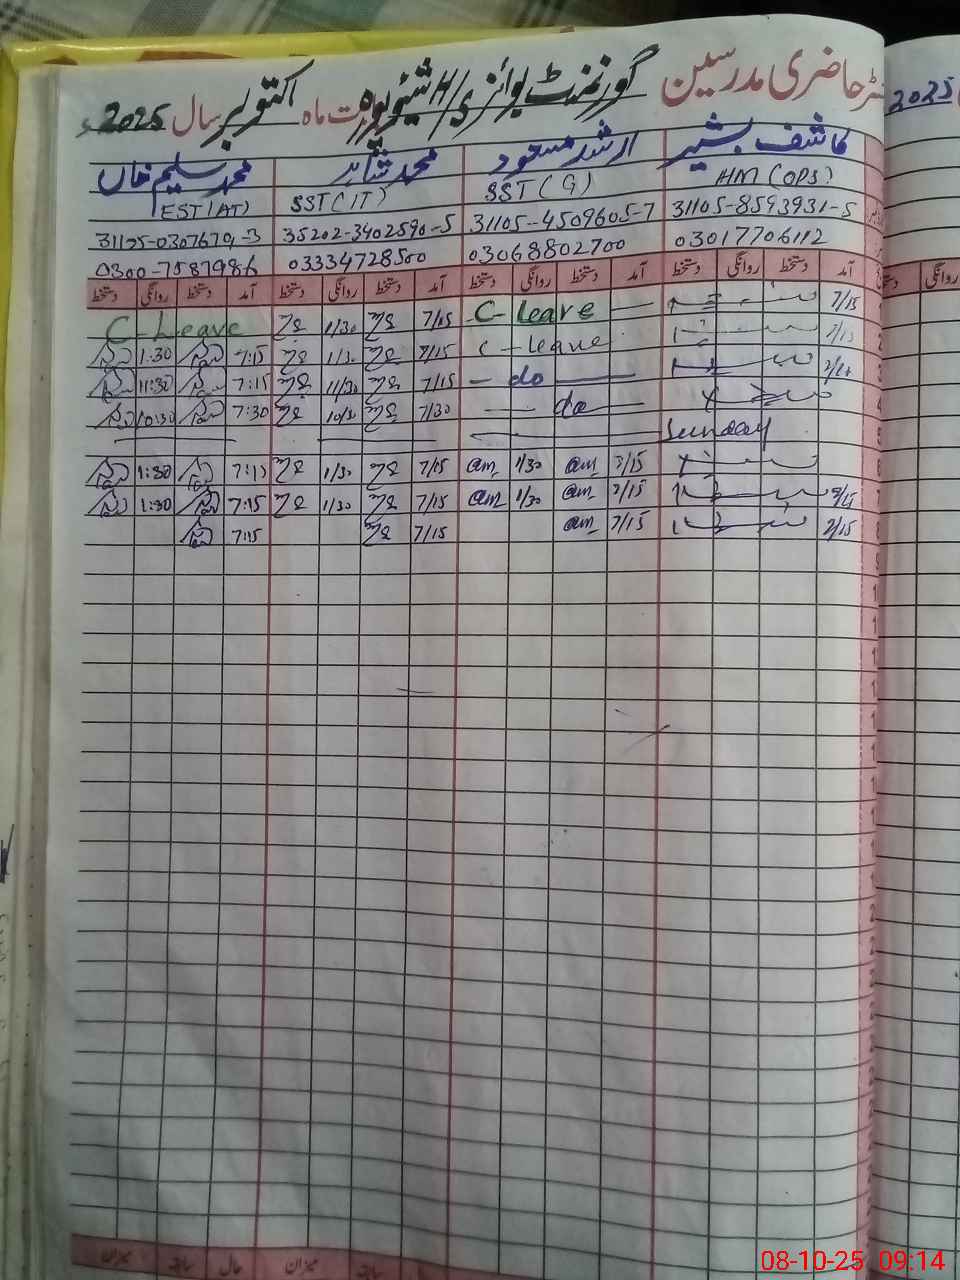 رجسٹر حاضری مدرسین گورنمنٹ بوائز H/S شیخوپورہ بابت ماہ اکتوبر سال 2025ء
2025
کاشف بشیر ارشد مسعود محمد شاہد محمد سلیم خان
HM (OPS) SST (G) SST (IT) EST (AT)
31105-8593931-5 31105-4509605-7 35202-3402590-5
03017706112 03068802700 03334728500 0300-7587986
آمد دستخط روانگی دستخط آمد دستخط روانگی دستخط آمد دستخط روانگی دستخط آمد دستخط روانگی دستخط
روانگی
7/15 C-Leave 7/15 1/30 C-Leave
7/15 C-Leave 7/15 1/30 7:15 1:30
7/15 - do - 7/15 11/30 7:15 11:30
- do - 7/30 10/30 7:30 10:30
Sunday
7/15 am 1/30 am 7/15 1/30 7:15 1:30
7/15 7/15 am 1/30 am 7/15 1/30 7:15 1:30
7/15 7/15 am 7/15 7:15
میزان سابقہ حال میزان سابقہ
08-10-25 09:14